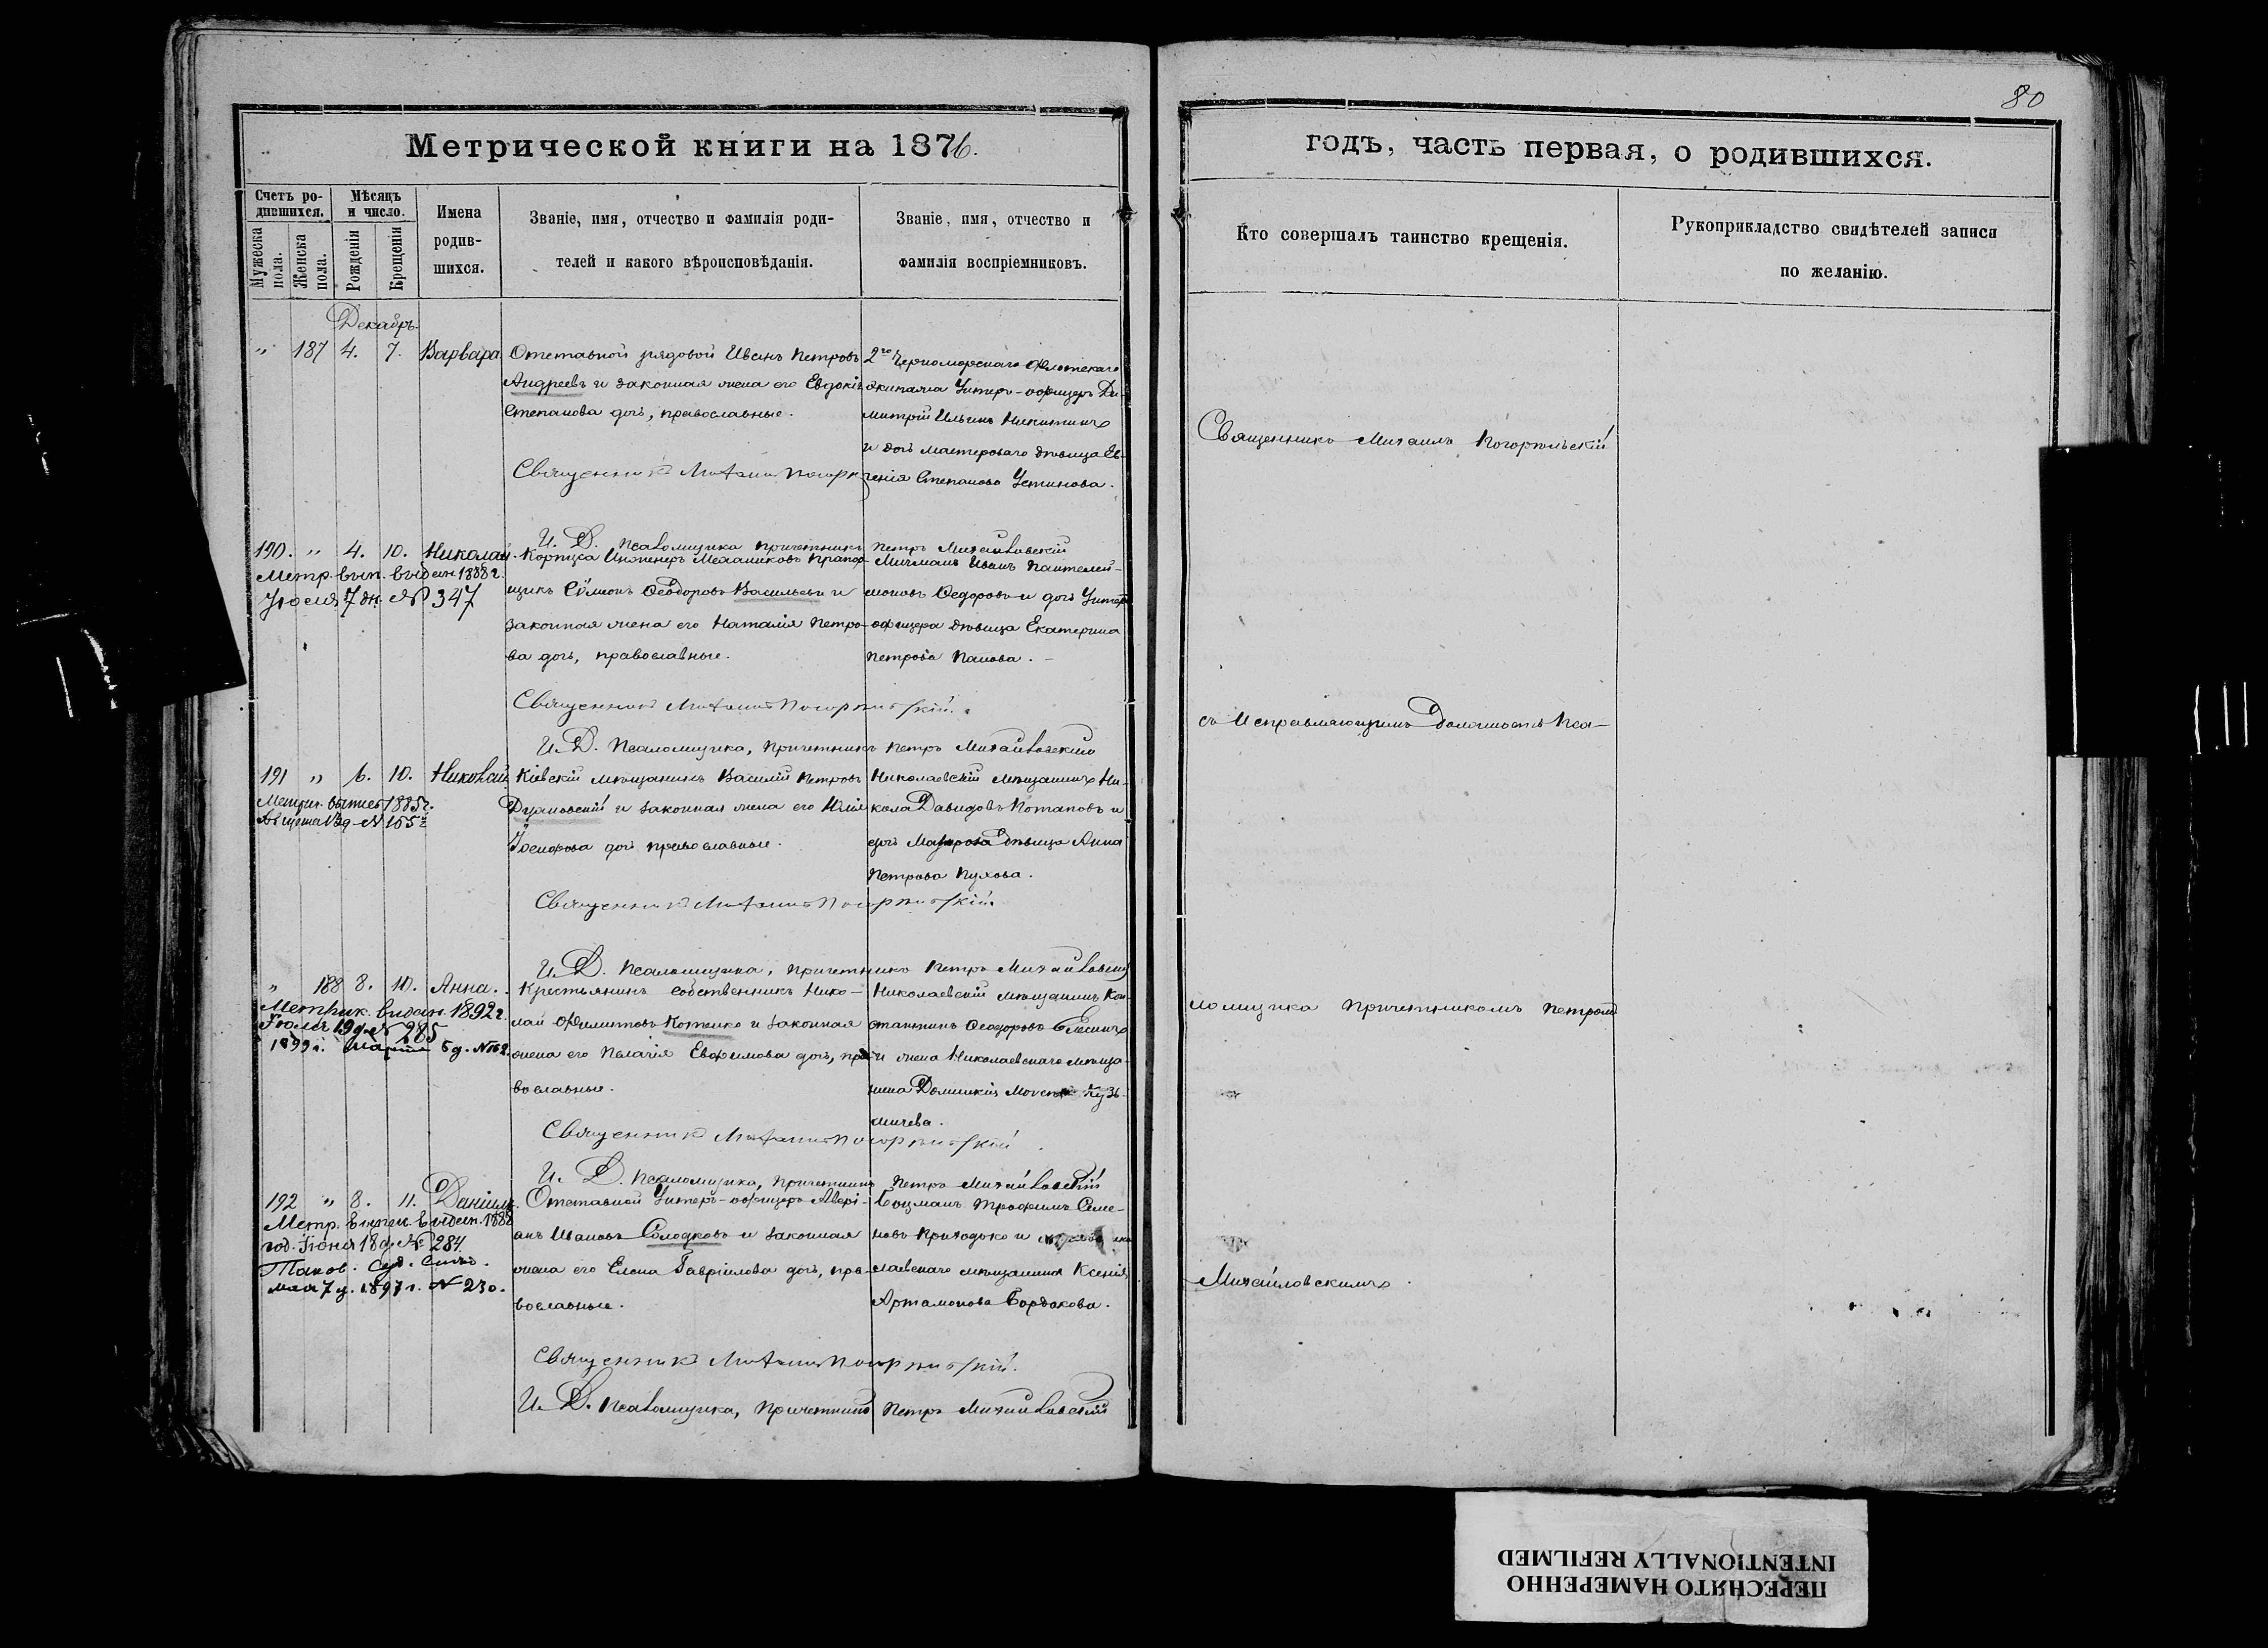 80
Метрической книги на 1876.
Счетъ ро-
дившихся.
Мѣсяцъ
и число.
Мужеска
пола.
Женска
пола.
Рожденія
Крещенія
Имена
родив-
шихся.
Званіе, имя, отчество и фамилія роди-
телей и какого вѣроисповѣданія.
Званіе, имя, отчество и
фамилія воспріемниковъ.
Декабрь.
" 187 4. 7. Варвара
Отставной рядовой Иванъ Петровъ
Андреевъ и законная жена его Евдокія
Степанова дочь, православные.
2го Черноморскаго Флотскаго
экипажа Унтеръ-офицеръ Ди-
митрій Ильинъ Никитинъ
и дочь мастероваго дѣвица Ев-
генія Степанова Устинова.
Священникъ Михаилъ
И. Д. Псаломщика причетникъ Петръ Михайловскій
190. " 4. 10. Николай.
Метр. вып. выдан. 1888 г.
Іюля 7 дн. № 347
Корпуса Инженеръ Механиковъ Прапор-
щикъ Сѵмеонъ Ѳеодоровъ Васильевъ и
законная жена его Наталія Петро-
ва дочь, православные.
Мичманъ Иванъ Пантелей-
моновъ Ѳедоровъ и дочь Унтеръ
офицера дѣвица Екатерина
Петрова Панова.
Священникъ Михаилъ Погорѣльскій.
И. Д. Псаломщика, причетникъ Петръ Михайловскій
191 " 6. 10. Николай
1885 г.
Августа
Кіевскій мѣщанинъ Василій Петровъ
и законная жена его Юлія
Іосифова дочь православные.
Николаевскій мѣщанинъ Ни-
кола Давидовъ Потаповъ и
дочь дѣвица Анна
Петрова Пухова.
Священникъ Михаилъ Погорѣльскій.
И. Д. Псаломщика, причетникъ Петръ Михайловскій
" 188 8. 10. Анна.
Метрик. выдан. 1892 г.
Іюля 19 д. № 285
1899 г. Марта 5 д.
Крестьянинъ собственникъ Нико-
лай Филиповъ Котенко и законная
жена его Пелагія Евфимова дочь, пра-
вославные.
Николаевскій мѣщанинъ Кон-
стантинъ Ѳеодоровъ Елесинъ
и жена Николаевскаго мѣща-
нина Домникія Кузь-
мичева.
Священникъ Михаилъ Погорѣльскій
И. Д. Псаломщика, причетникъ Петръ Михайловскій
192 " 8. 11. Даніилъ.
Метр. выдан. 1888
год. Іюня 18 д. № 284.
Таков.
мая 7 д. 1897 г. № 230.
Отставной Унтеръ-офицеръ Авері-
анъ Ивановъ Солодковъ и законная
жена его Елена Гавріилова дочь, пра-
вославные.
Боцманъ Трофимъ Семе-
новъ Приходько и
лаевскаго мѣщанина Ксенія
Артамонова Бордакова.
Священникъ Михаилъ Погорѣльскій.
И. Д. Псаломщика, Причетникъ Петръ Михайловскій
годъ, часть первая, о родившихся.
Кто совершалъ таинство крещенія.
Рукоприкладство свидѣтелей записи
по желанію.
Священникъ Михаилъ Погорѣльскій
съ Исправляющимъ Должность Пса-
ломщика Причетникомъ Петромъ
Михайловскимъ.
ПЕРЕСНЯТО НАМЕРЕННО
INTENTIONALLY REFILMED